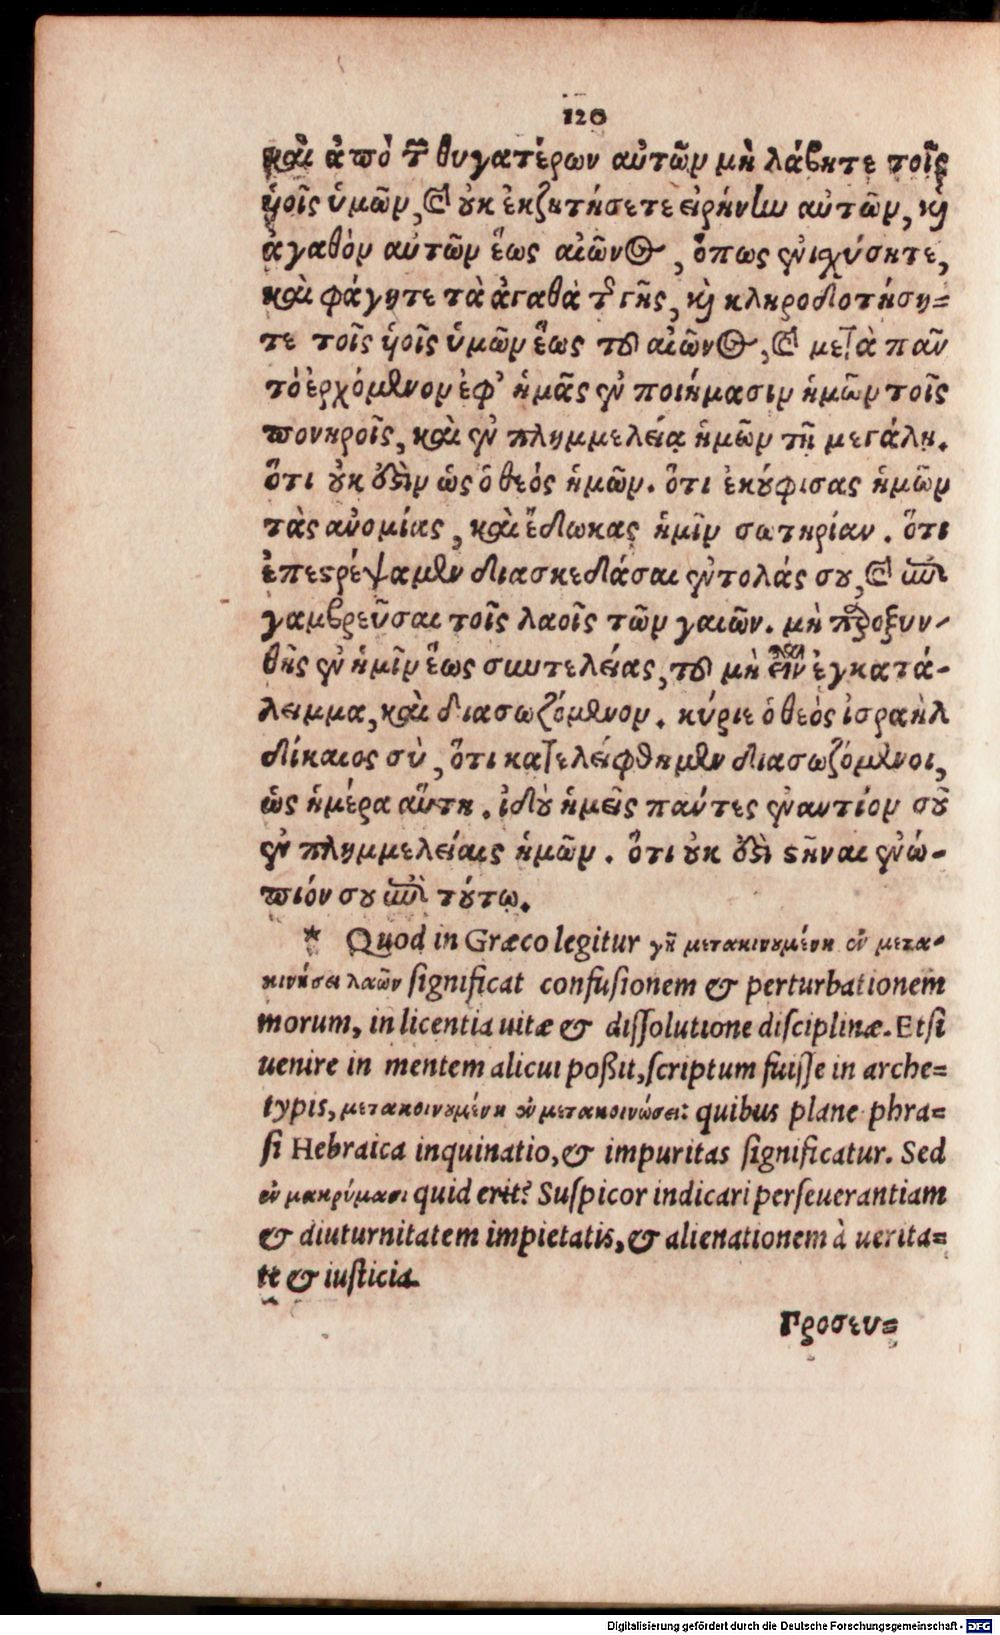 120
καὶ ἀπὸ τῶν θυγατέρων αὐτῶν μὴ λάβητε τοῖς
ἡοῖς ὑμῶν, καὶ οὐκ ἐκζητήσετε εἰρήνην αὐτῶν, καὶ
ἀγαθὸν αὐτῶν ἕως αἰῶνος, ὅπως ἐνιχύσητε,
καὶ φάγητε τὰ ἀγαθὰ τῆς γῆς, καὶ κληροδοτήση=
τε τοῖς ἡοῖς ὑμῶν ἕως τοῦ αἰῶνος, καὶ μετὰ πᾶν
τὸ ἐρχόμενον ἐφ' ἡμᾶς ἐν ποιήμασιν ἡμῶν τοῖς
πονηροῖς, καὶ ἐν πλημμελείᾳ ἡμῶν τῇ μεγάλῃ.
ὅτι οὐκ οὐδεὶν ὡς ὁ θεός ἡμῶν. ὅτι ἐκούφισας ἡμῶν
τὰς ἀνομίας, καὶ ἔδωκας ἡμῖν σωτηρίαν. ὅτι
ἐπεστρέψαμεν διασκεδάσαι ἐντολάς σου, καὶ ἐπι
γαμβρεῦσαι τοῖς λαοῖς τῶν γαιῶν. μὴ παροξυν-
θῇς ἐν ἡμῖν ἕως συντελείας, τοῦ μὴ εἶναι ἐγκατά-
λειμμα, καὶ διασωζόμενον. κύριε ὁ θεὸς ἰσραὴλ
δίκαιος σὺ, ὅτι κατελείφθημεν διασωζόμενοι,
ὡς ἡμέρα αὕτη. ἰδοὺ ἡμεῖς πάντες ἐναντίον σοῦ
ἐν πλημμελείαις ἡμῶν. ὅτι οὐκ ἔστι στῆναι ἐνώ-
πιόν σου ἐπὶ τούτῳ.
* Quod in Græco legitur γῆ μετακινουμένη ἐν μετα-
κινήσει λαῶν significat confusionem & perturbationem
morum, in licentia uitæ & dissolutione disciplinæ. Etsi
uenire in mentem alicui poßit, scriptum fuisse in arche=
typis, μετακοινουμένη ἐν μετακοινώσει: quibus plane phra=
si Hebraica inquinatio, & impuritas significatur. Sed
ἐν μακρύμασι quid erit? Suspicor indicari perseuerantiam
& diuturnitatem impietatis, & alienationem à uerita=
te & iusticia.
Προσευ=
Digitalisierung gefördert durch die Deutsche Forschungsgemeinschaft - DFG